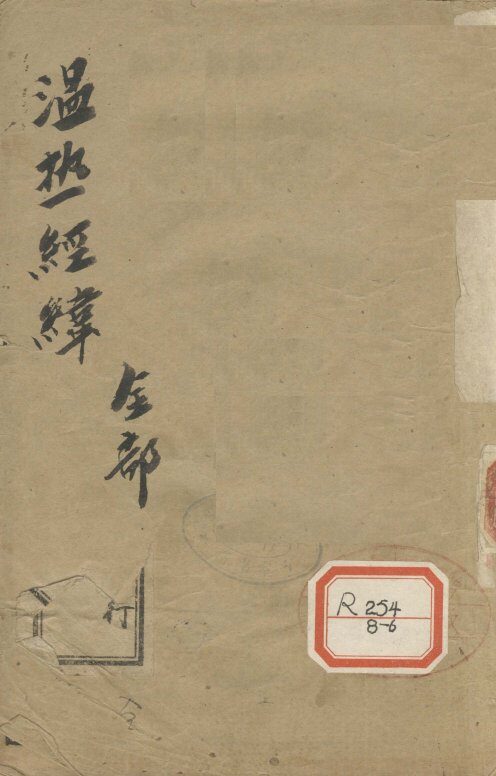 温热經緯
全部
行
R 254
8-6
仝